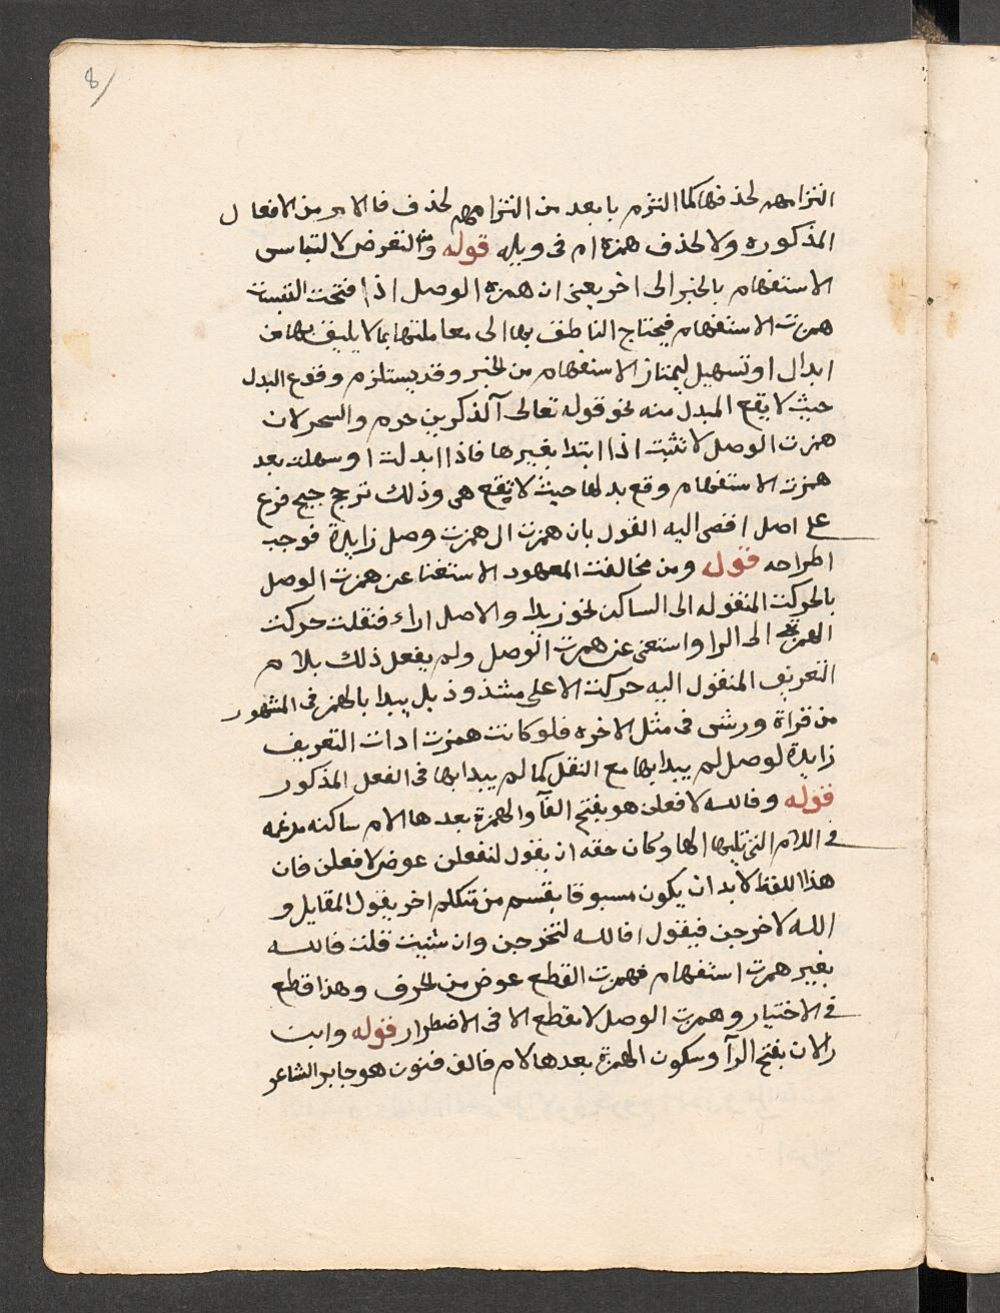 8
التزامهم لحذفها كما التزم بابعد من التزامهم لحذف فا الامر من الافعال
المذكوره ولا لحذف همزة ام فى ويلمه قوله والتعرض لالتباس
الاستفهام بالخبر الى اخر يعنى ان همزه الوصل اذا فتحت التبست
همزت الاستفهام فيحتاج الناطق بها الى معاملتها بما لا يليق بها من
ابدال او تسهيل ليمتاز الاستفهام من الخبر وقد يستلزم وقوع البدل
حيث لا يقع المبدل منه نحو قوله تعالى آلذكرين حرم والسحر لان
همزت الوصل لا تثبت اذا ابتدا بغيرها فاذا ابدلت او سهلت بعد
همزت الاستفهام وقع بدلها حيث لا تقع هى وذلك ترجيح فرع
على اصل افضى اليه القول بان همزت ال همزت وصل زايدة فوجب
اطراحه قوله ومن مخالفت المعهود الاستغنا عن همزت الوصل
بالحركت المنقوله الى الساكن نحو ر يدا والاصل اراء فنقلت حركت
الهمزت الى الرا واستغنى عن همزت الوصل ولم يفعل ذلك بلام
التعريف المنقول اليه حركت الا على شذوذ بل يبدا بالهمز فى المشهور
من قراة ورش فى مثل الاخره فلو كانت همزت ادات التعريف
زايدة لوصل لم يبدا بها مع النقل كما لم يبدا بها فى الفعل المذكور
قوله وفالله لافعلن هو بفتح الفآ والهمزة بعدها الام ساكنه مدغمه
فى اللام التى تليها الها وكان حقه ان يقول لتفعلن عوض لافعلن فان
هذا اللفظ لا بد ان يكون مسبوقا بقسم من متكلم اخر يقول المقايل و
الله لاخرجن فيقول افالله لتخرجن وان شيت قلت فالله
بغير همزت استفهام فهمزت القطع عوض من الحرف وهذا قطع
فى الاختيار وهمزت الوصل لا تقطع الا فى الاضطرار قوله وابن
رالان بفتح الرآ وسكون الهمزة بعدها لام فالف فنون هو جابر الشاعر